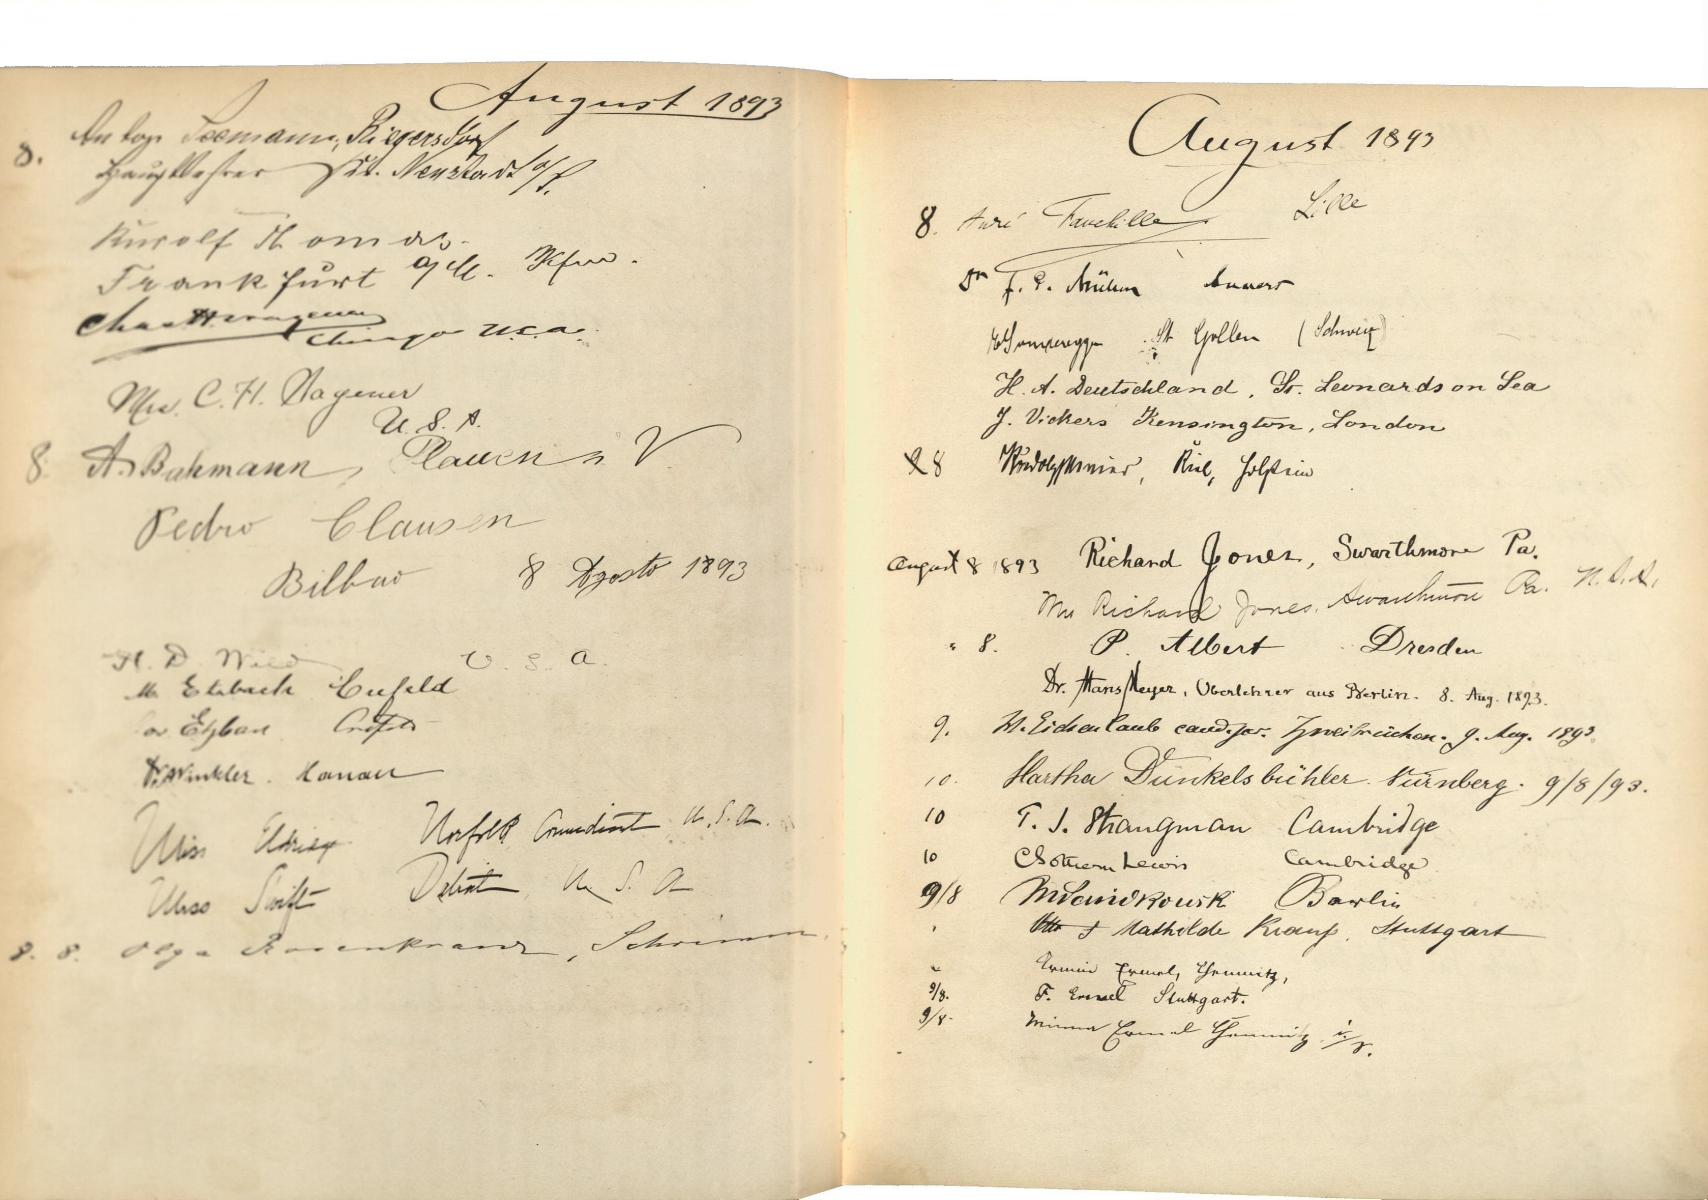 August 1893
8. Anton Seemann, Riegersdorf
Hauptlehrer Kr. Neustadt o/S.
Rudolf Thomas
Frankfurt a/M.
Chas H Wagener
Chicago U.S.A.
Mrs. C. H. Wagener
U. S. A.
8. A. Bahmann, Plauen i. V
Pedro Clausen
Bilbao 8 Agosto 1893
H. D. Wild U. S. A.
Elzbach Crefeld
Crefeld
Winkler. Hanau
Miss Norfolk Connecticut U.S.A.
Miss Swift Detroit U. S. A
8. 8. Olga Rosenkranz, Schrimm
August 1893
8. Fauchille Lille
Dr F. C. Anvers
St Gallen (Schweiz)
H. A. Deutschland, St. Leonards on Sea
J. Vickers Kensington, London
8 Kiel, Holstein
August 8 1893 Richard Jones, Swarthmore Pa.
Mrs Richard Jones, Swarthmore Pa. U.S.A.
" 8. P. Albert Dresden
Dr. Hans Meyer, Oberlehrer aus Berlin. 8. Aug. 1893.
9. W. Eichenlaub cand. jur. Zweibrücken. 9. Aug. 1893.
10. Martha Dünkelsbühler Nürnberg. 9/8/93.
10 T. J. Strangman Cambridge
10 C Sothern Lewis Cambridge
9/8 Berlin
Otto & Mathilde Krauß, Stuttgart
" Erwin Ermel, Chemnitz,
9/8. F. Ermel Stuttgart.
9/8. Minna Ermel Chemnitz i/S.